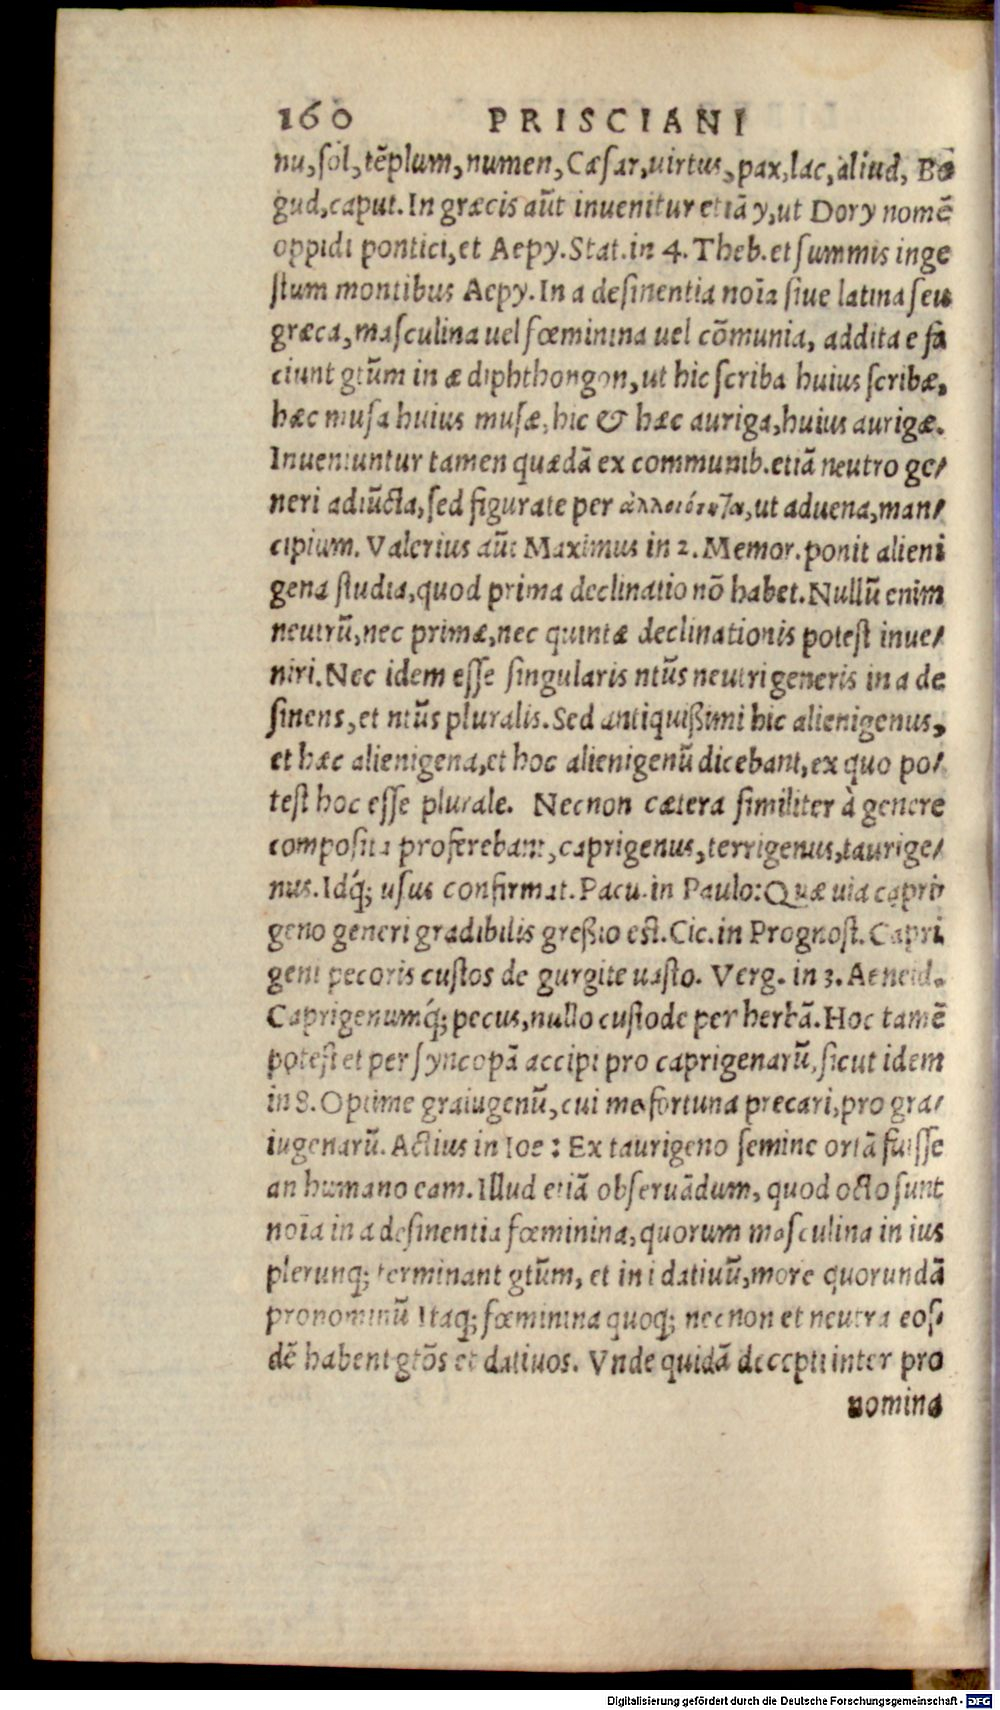 160 PRISCIANI
nu, sol, tẽplum, numen, Cæsar, uirtus, pax, lac, aliud, Bo
gud, caput. In græcis aũt inuenitur etiã y, ut Dory nomẽ
oppidi pontici, et Aepy. Stat. in 4. Theb. et summis inge
stum montibus Aepy. In a desinentia noĩa siue latina seu
græca, masculina uel fœminina uel cõmunia, addita e fa
ciunt gtũm in æ diphthongon, ut hic scriba huius scribæ,
hæc musa huius musæ, hic & hæc auriga, huius aurigæ.
Inueniuntur tamen quædã ex communib. etiã neutro ge/
neri adiũcta, sed figurate per ἀλλοιότητα, ut aduena, man/
cipium. Valerius aũt Maximus in 2. Memor. ponit alieni
gena studia, quod prima declinatio nõ habet. Nullũ enim
neutrũ, nec primæ, nec quintæ declinationis potest inue/
niri. Nec idem esse singularis ntũs neutri generis in a de
sinens, et ntũs pluralis. Sed antiquißimi hic alienigenus,
et hæc alienigena, et hoc alienigenũ dicebant, ex quo po/
test hoc esse plurale. Necnon cætera similiter à genere
composita proferebant, caprigenus, terrigenus, taurige/
nus. Idq́; usus confirmat. Pacu. in Paulo: Quæ uia capri
geno generi gradibilis greßio est. Cic. in Prognost. Capri
geni pecoris custos de gurgite uasto. Verg. in 3. Aeneid.
Caprigenumq́; pecus, nullo custode per herbã. Hoc tamẽ
potest et per syncopã accipi pro caprigenarũ, sicut idem
in 8. Optime graiugenũ, cui me fortuna precari, pro gra/
iugenarũ. Actius in Ioe: Ex taurigeno semine ortã fuisse
an humano eam. Illud etiã obseruãdum, quod octo sunt
noĩa in a desinentia fœminina, quorum masculina in ius
plerunq; terminant gtũm, et in i datiuũ, more quorundã
pronominũ Itaq; fœminina quoq; necnon et neutra eos/
dẽ habent gtõs et datiuos. Vnde quidã decepti inter pro
nomina
Digitalisierung gefördert durch die Deutsche Forschungsgemeinschaft - DFG